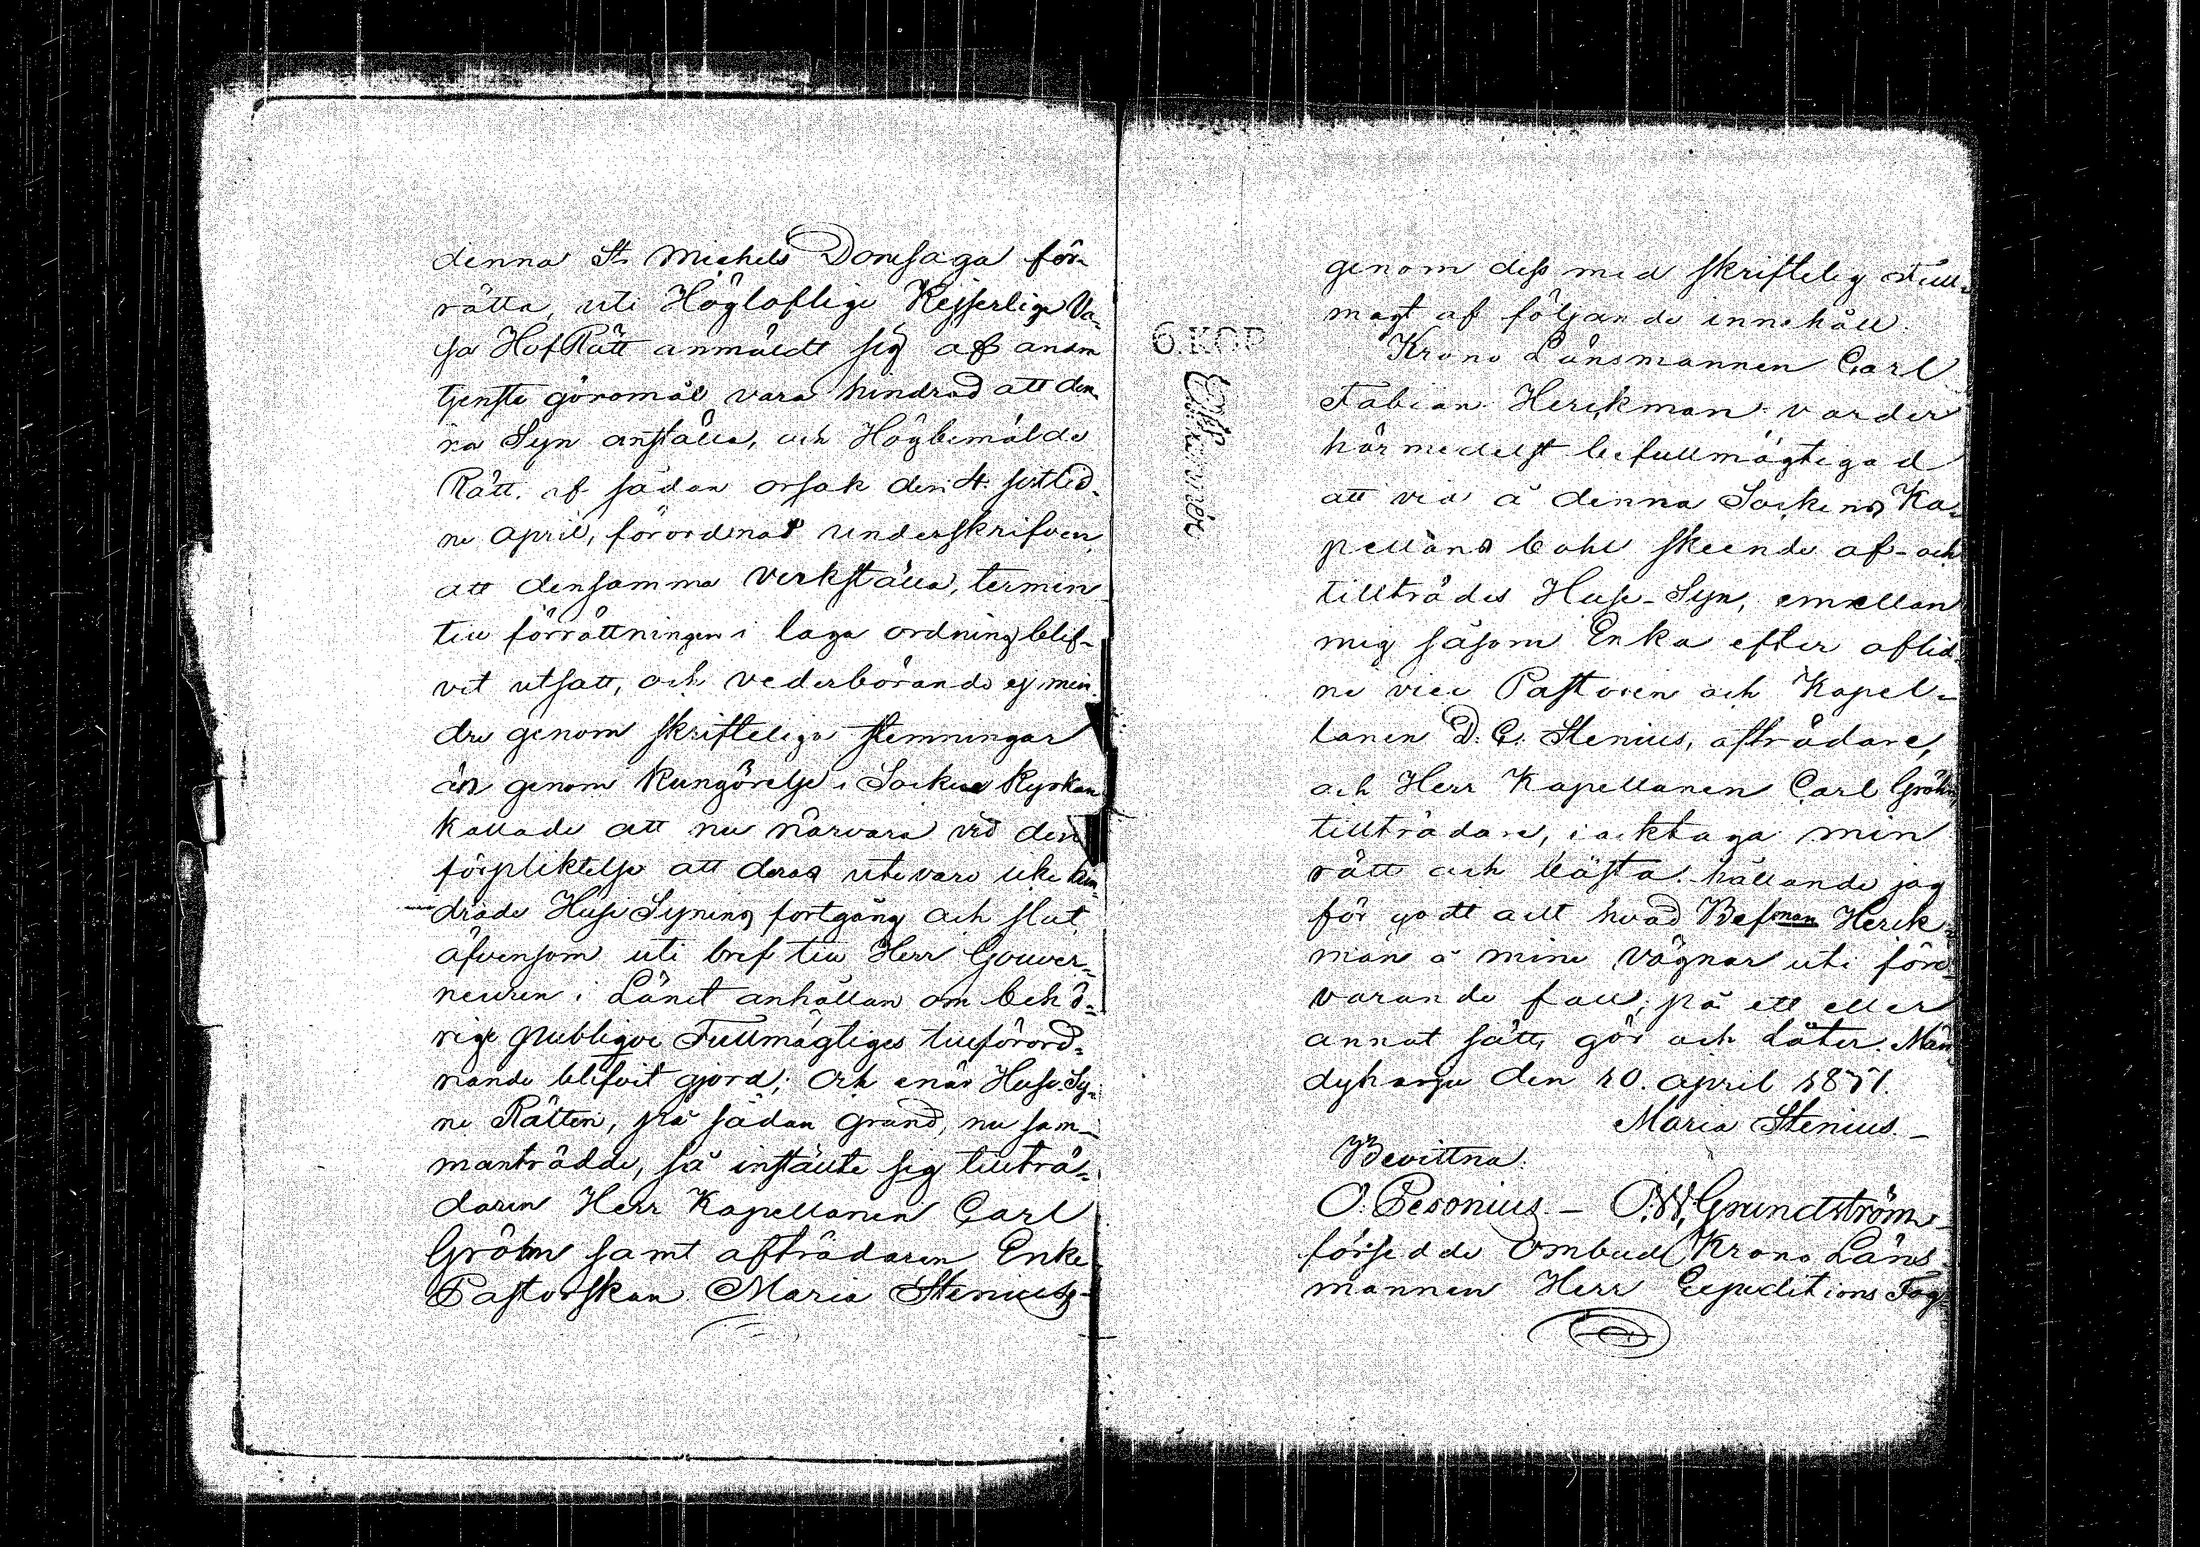 denna St. Michels Domsaga för-
rätta, uti Högloflige Kejserlige Va-
sa HofRätt anmäldt sig af annan
tjenste göromål vara hindrad att den-
na Syn anställa, och Högbemälde
Rätt af sådan orsak den 4. sistled-
ne April, förordnat underskrifven,
att densamma verkställa, termin
till förrättningen i laga ordning blif-
vit utsatt, och vederbörande ej min-
dre genom skrifteliga stemningar
än genom kungörelse i Sockne Kyrkan
kallade att nu närvara vid den
förpliktelse att deras utevaro icke hin-
drade Huse Synens fortgång och slut,
äfvensom uti bref till Herr Gouver-
neuren i Länet anhållan om behö-
rige publique Fullmägtiges tillförord-
nande blifvit gjord; Och enär Huse Sy-
ne Rätten, på sådan grund, nu sam-
manträdde, så instälte sig tillträ-
daren Herr Kapellanen Carl
Gröhn samt afträdaren Enke
Pastorskan Maria Stenius,
6. KOP
genom dess med skriftelig Full-
magt af följande innehåll
Krono Länsmannen Carl
Fabian Herckman varder
härmedelst befullmägtigad
att vid å denna Sockens Ka-
pellans bohl skeende af- och
tillträdes Huse-Syn, emellan
mig såsom Enka efter aflid-
ne vice Pastoren och Kapel-
lanen D. C. Stenius, afträdare,
och Herr Kapellanen Carl Gröhn,
tillträdare, iakttaga min
rätt och bästa hållande jag
för godt allt hvad Befman Herck-
man å mine vägnar uti före-
varande fall, på ett eller
annat sätt, gör och låter. Män-
dyharju den 10. April 1851.
Maria Stenius.
Bevittna:
O. Pesonius. — O. W. Grundström
försedde ombud Krono Läns-
mannen Herr Expeditions Fog-